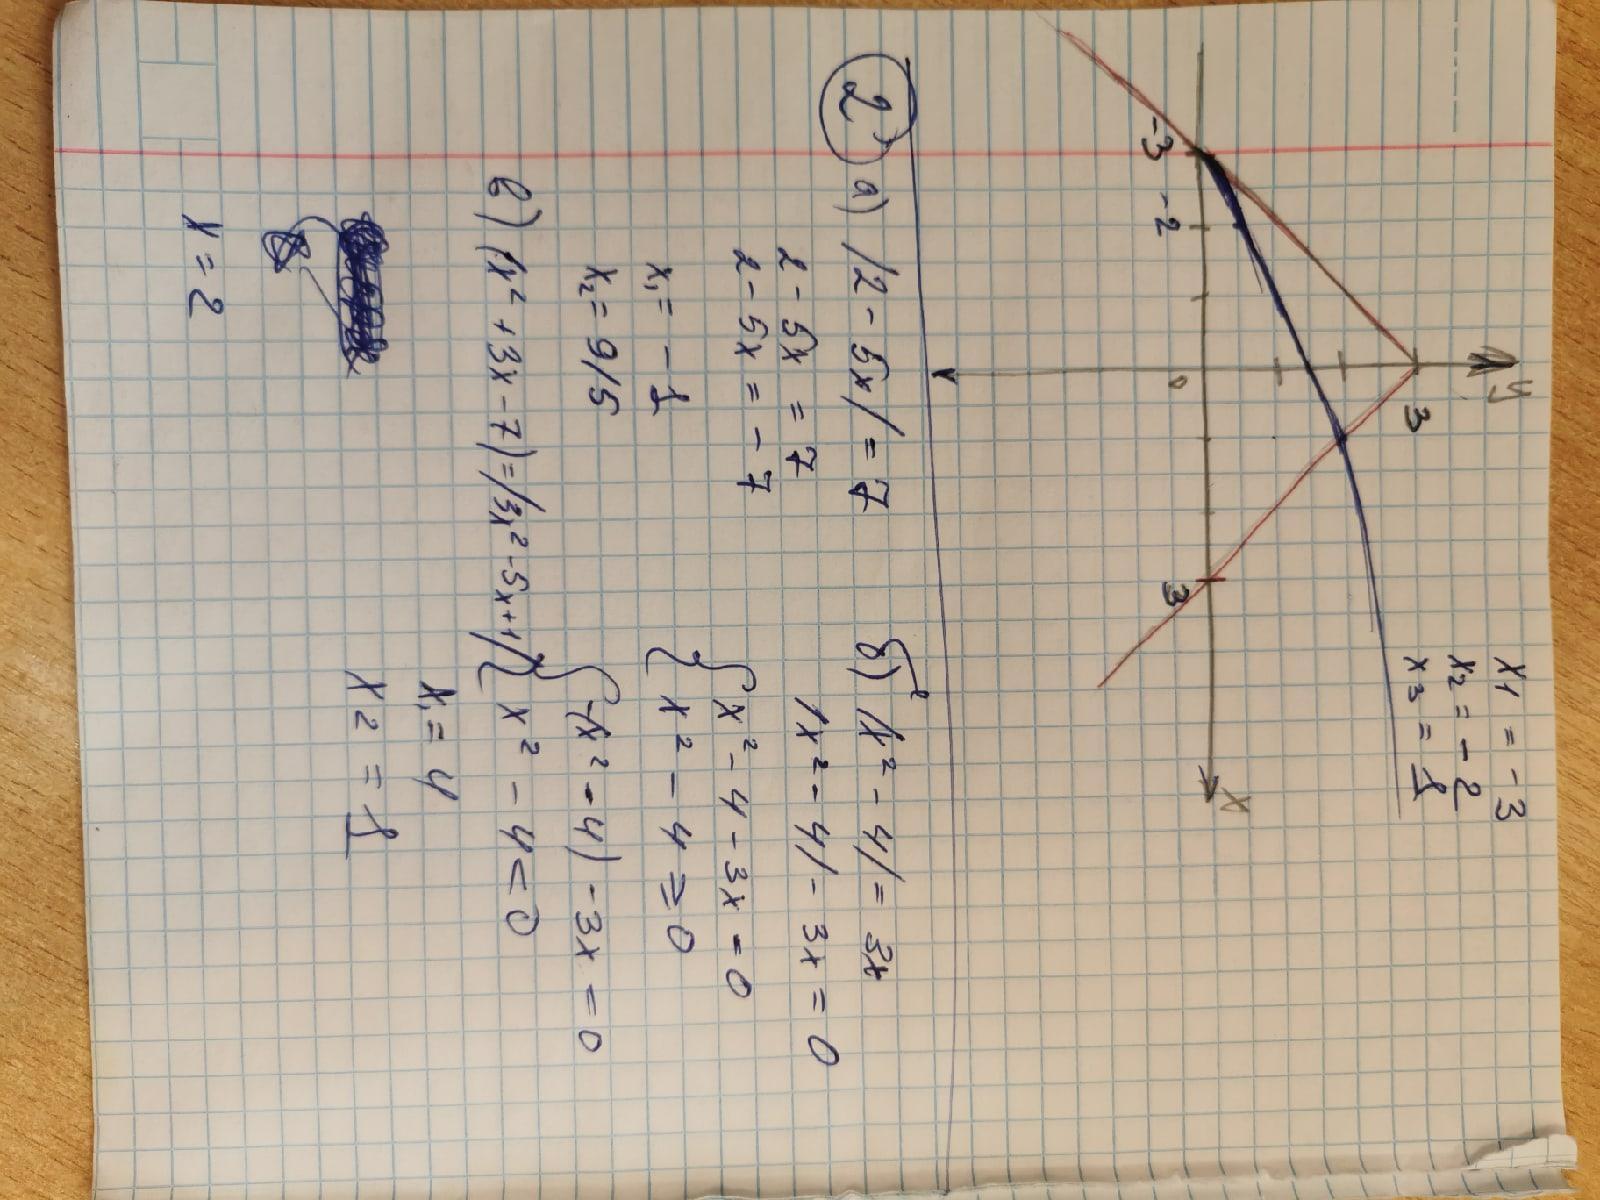 x1 = -3
x2 = -2
x3 = 1
y
3
-3 -2 0 3 x
2 а) |2 - 5x| = 7
2 - 5x = 7
2 - 5x = -7
x1 = -1
x2 = 9/5
б) |x² - 4| = 3x
|x² - 4| - 3x = 0
{ x² - 4 - 3x = 0
{ x² - 4 ≥ 0
{ -(x² - 4) - 3x = 0
{ x² - 4 < 0
x1 = 4
x2 = 1
в) |x² + 3x - 7| = |3x² - 5x + 1|
x = 2